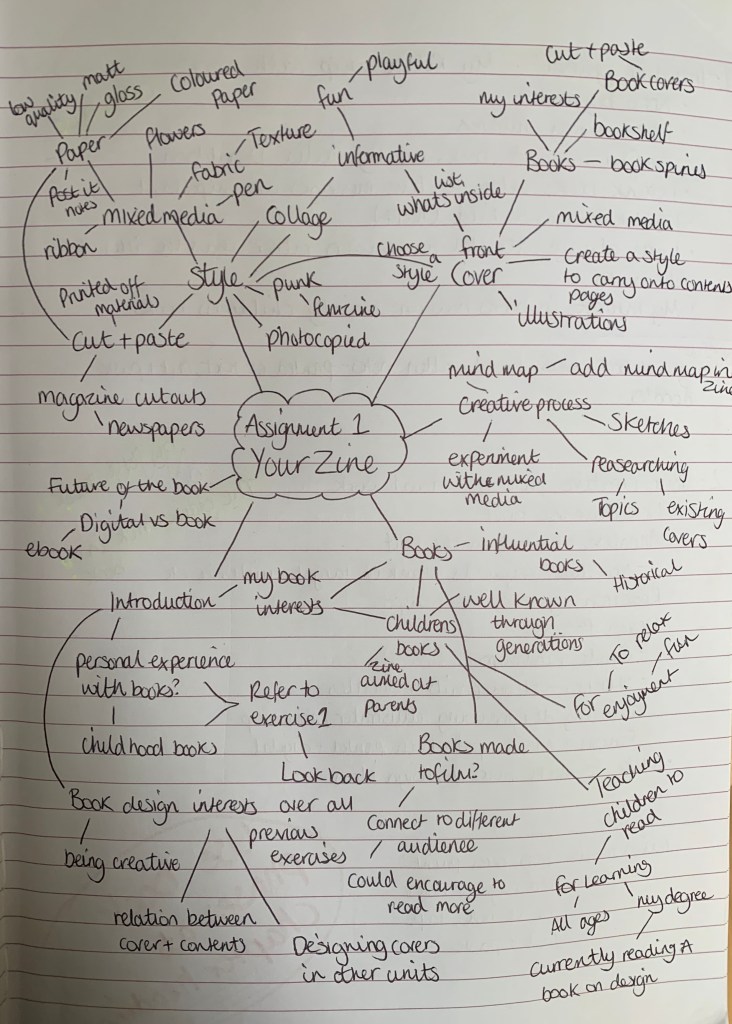 low
quality
matt
gloss
Coloured
Paper
Paper
Post it
notes
flowers
fabric
Texture
pen
mixed media
ribbon
Printed off
materials
Cut + paste
magazine cutouts
newspapers
Style
Collage
punk
femzine
photocopied
fun
playful
informative
list
whats inside
choose
a
style
front
Cover
cut + paste
Book covers
my interests
bookshelf
Books – book spines
mixed media
Create a style
to carry onto contents
pages
illustrations
Assignment 1
Your Zine
mind map – add mind map in
zine
Creative process
Sketches
experiment
with mixed
media
reasearching
Topics
existing
covers
Future of the book
Digital vs book
ebook
Books – influential
books
Historical
my book
interests
Introduction
childrens
books
well known
through
generations
zine
aimed at
parents
personal experience
with books?
childhood books
Refer to
exercise 1
Look back
over all
previous
exercises
For
enjoyment
To relax
fun
Books made
to film?
Connect to different
audience
Could encourage to
read more
Teaching
children to
read
for learning
All ages
my degree
Currently reading A
book on design
Book design interests
being creative
relation between
cover + contents
Designing covers
in other units